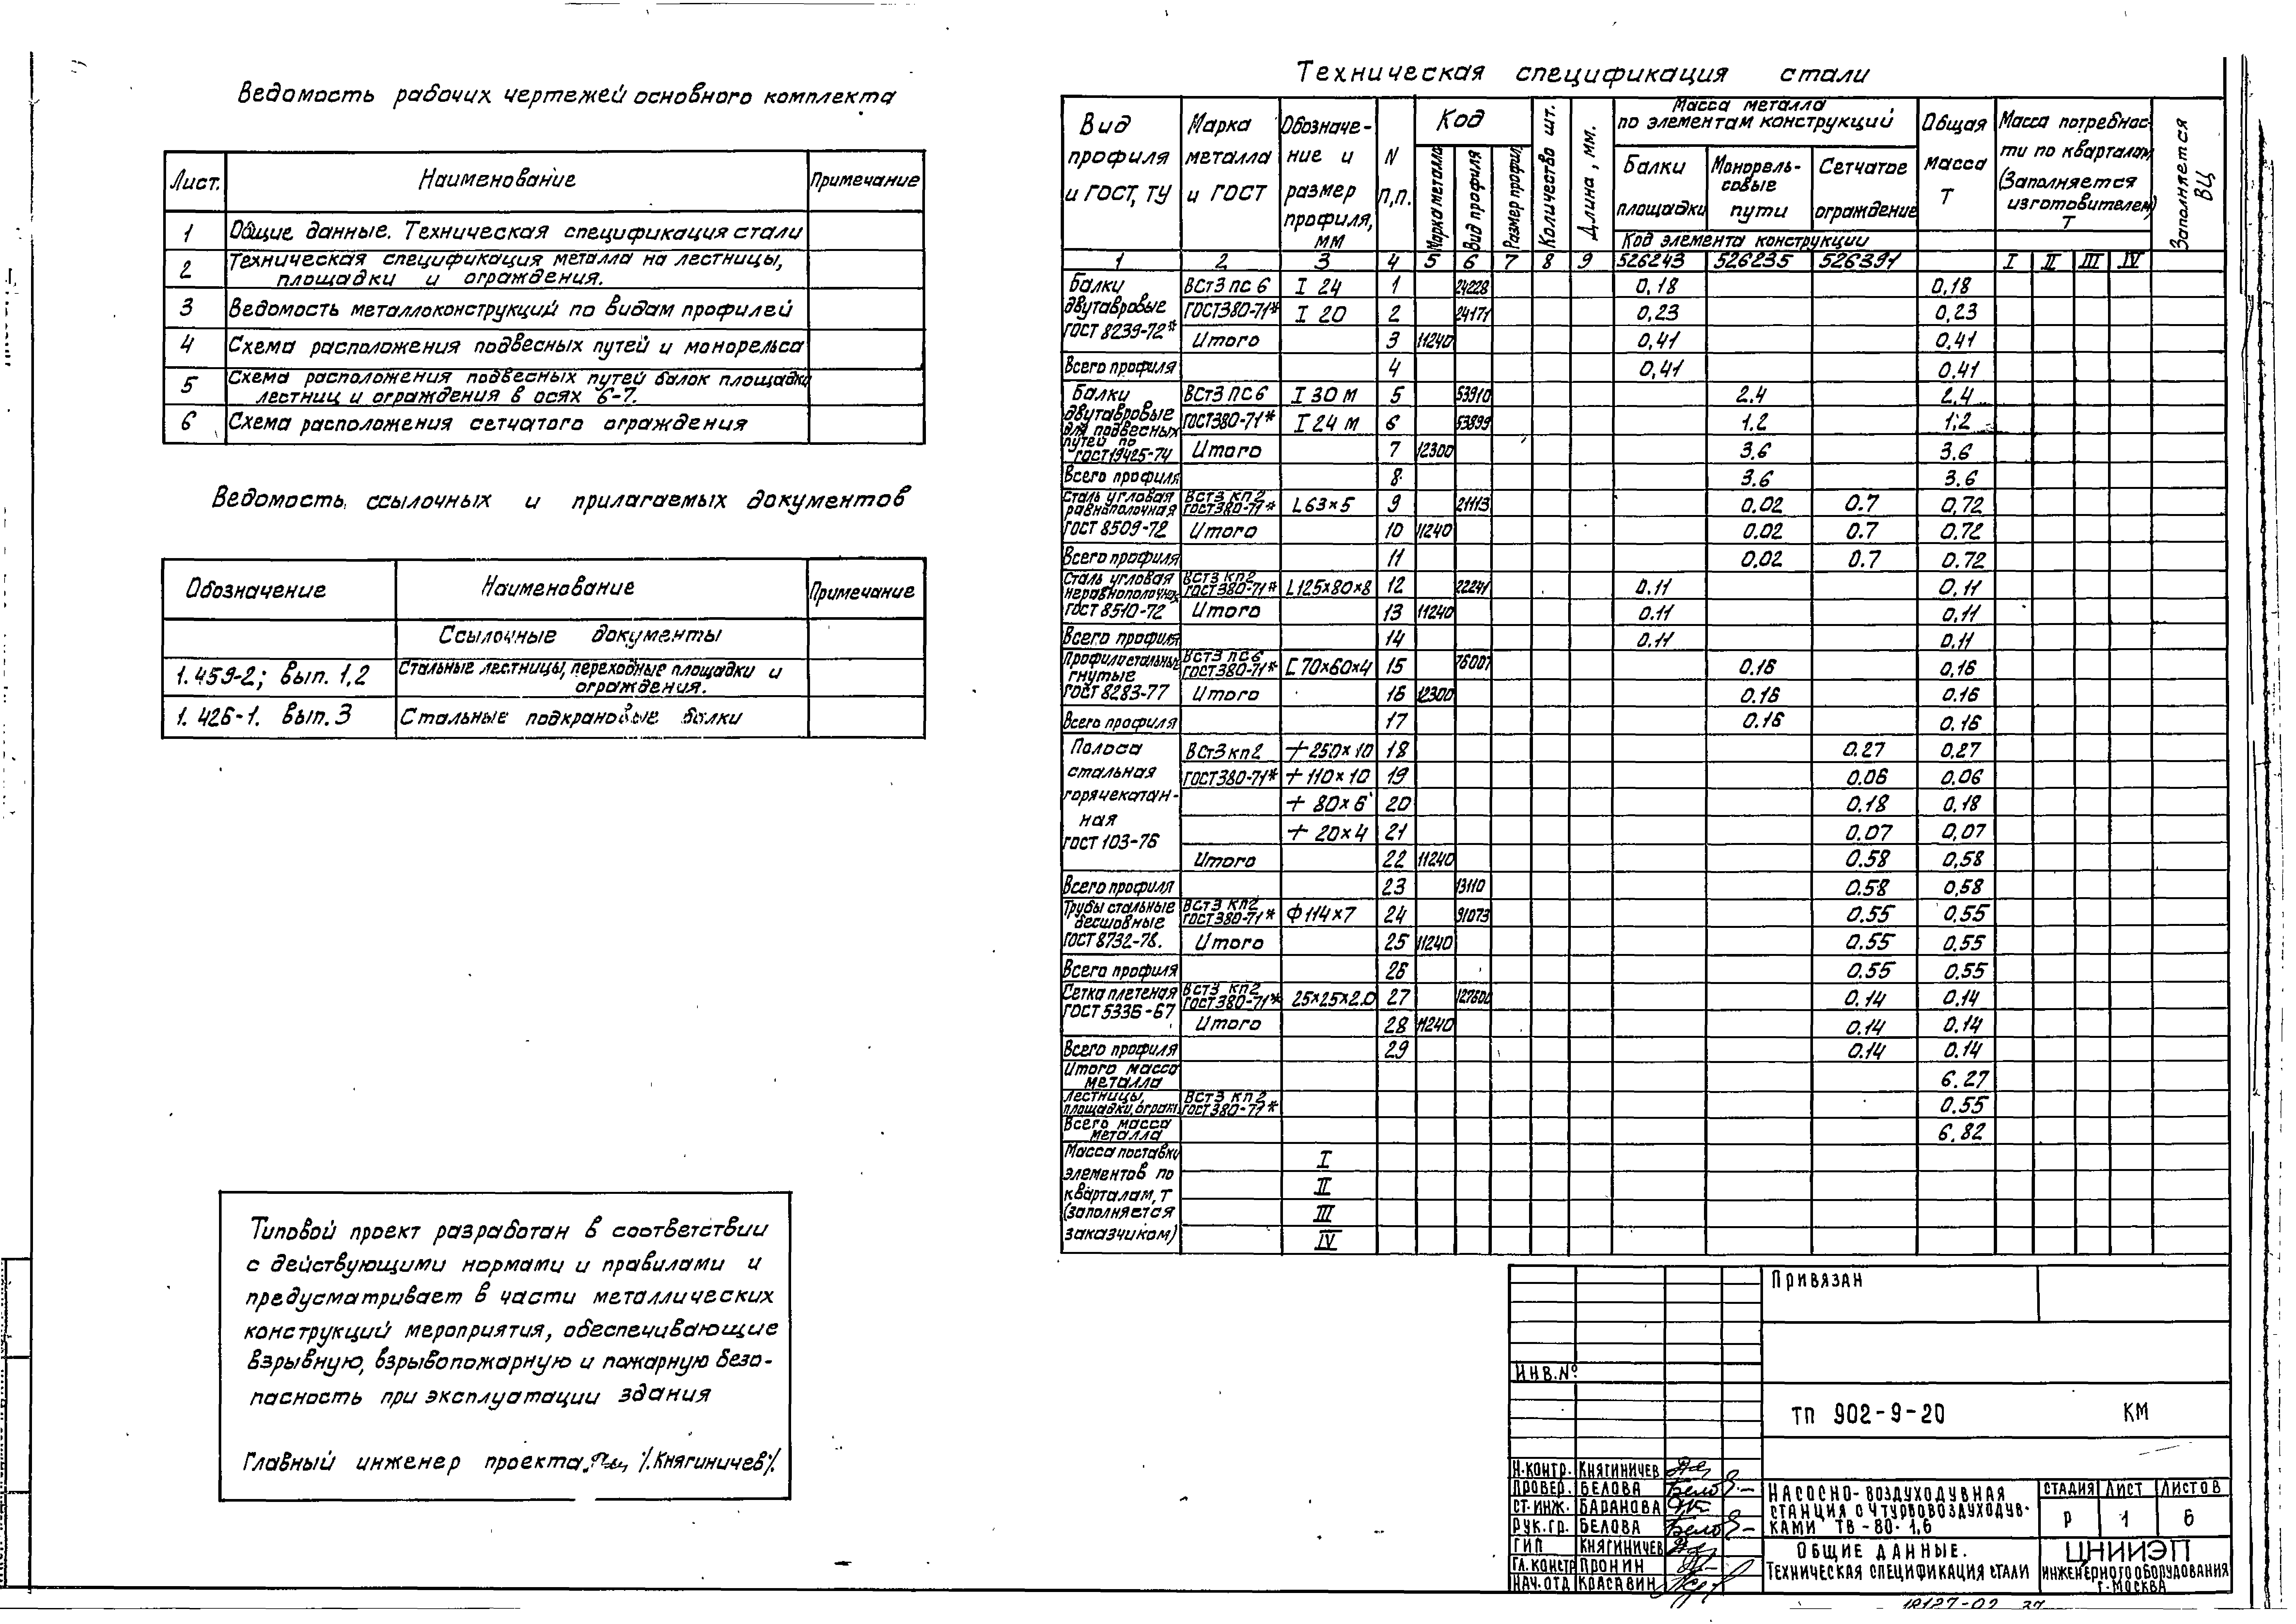 Ведомость рабочих чертежей основного комплекта
Лист. Наименование Примечание
1 Общие данные. Техническая спецификация стали
2 Техническая спецификация металла на лестницы,
площадки и ограждения.
3 Ведомость металлоконструкций по видам профилей
4 Схема расположения подвесных путей и монорельса
5 Схема расположения подвесных путей балок площадки
лестниц и ограждения в осях 6-7.
6 Схема расположения сетчатого ограждения
Ведомость ссылочных и прилагаемых документов
Обозначение Наименование Примечание
Ссылочные документы
1.459-2; вып. 1,2 Стальные лестницы, переходные площадки и
ограждения.
1.426-1. вып. 3 Стальные подкрановые балки
Типовой проект разработан в соответствии
с действующими нормами и правилами и
предусматривает в части металлических
конструкций мероприятия, обеспечивающие
взрывную, взрывопожарную и пожарную безо-
пасность при эксплуатации здания
Главный инженер проекта /.Княгиничев/.
Техническая спецификация стали
Вид профиля и ГОСТ, ТУ
Марка металла и ГОСТ
Обозначе-
ние и
размер
профиля,
мм
N п,п.
Код
Марка металла
Вид профиля
Размер профиля
Количество шт.
Длина, мм.
Масса металла
по элементам конструкций
Балки площадки
Монорель-
совые
пути
Сетчатое ограждение
Код элемента конструкции
Общая масса Т
Масса потребнос-
ти по кварталам
(Заполняется
изготовителем)
Т
Заполняется ВЦ
1 2 3 4 5 6 7 8 9 526243 526235 526391 I II III IV
Балки
двутавровые
ГОСТ 8239-72*
ВСт3 пс 6 I 24 1 24228 0,18 0,18
ГОСТ380-71* I 20 2 24171 0,23 0,23
Итого 3 11240 0,41 0,41
Всего профиля 4 0,41 0.41
Балки
двутавровые
для подвесных
путей по
ГОСТ19425-74
ВСт3 ПС6 I 30 м 5 53910 2.4 2,4
ГОСТ380-71* I 24 м 6 53899 1.2 1,2
Итого 7 12300 3.6 3.6
Всего профиля 8 3.6 3.6
Сталь угловая
равнополочная
ГОСТ 8509-72
ВСт3 кп2
ГОСТ380-71* L63×5 9 21113 0.02 0.7 0,72
Итого 10 11240 0.02 0.7 0.72
Всего профиля 11 0.02 0.7 0.72
Сталь угловая
неравнополочная
ГОСТ 8510-72
ВСт3 кп2
ГОСТ380-71* L125×80×8 12 22241 0.11 0,11
Итого 13 11240 0.11 0,11
Всего профиля 14 0.11 0.11
Профили стальные
гнутые
ГОСТ 8283-77
ВСт3 пс6
ГОСТ380-71* С 70×60×4 15 76007 0.16 0,16
Итого 16 12300 0.16 0.16
Всего профиля 17 0.16 0.16
Полоса
стальная
горячекатан-
ная
ГОСТ 103-76
ВСт3 кп2 250×10 18 0.27 0,27
ГОСТ380-71* 110×10 19 0.06 0.06
80×6 20 0.18 0,18
20×4 21 0.07 0,07
Итого 22 11240 0.58 0,58
Всего профиля 23 13110 0.58 0,58
Трубы стальные
бесшовные
ГОСТ 8732-78.
ВСт3 кп2
ГОСТ380-71* Ф114×7 24 91073 0.55 0,55
Итого 25 11240 0.55 0.55
Всего профиля 26 0.55 0.55
Сетка плетеная
ГОСТ 5336-67
ВСт3 кп2
ГОСТ380-71* 25×25×2.0 27 127600 0.14 0,14
Итого 28 11240 0.14 0.14
Всего профиля 29 0.14 0.14
Итого масса
металла 6.27
лестницы,
площадки, огражд.
ВСт3 кп2
ГОСТ380-71* 0.55
Всего масса
металла 6.82
Масса поставки
элементов по
кварталам, т
(заполняется
заказчиком)
I
II
III
IV
Привязан
Инв.№
ТП 902-9-20 КМ
Н.контр. Княгиничев
Провер. Белова
Ст.инж. Баранова
Рук.гр. Белова
ГИП Княгиничев
Гл.констр Пронин
Нач.отд Красавин
Насосно-воздуходувная
станция с 4 турбовоздуходув-
ками ТВ-80-1,6
Стадия Лист Листов
Р 1 6
Общие данные.
Техническая спецификация стали
ЦНИИЭП
инженерного оборудования
г. Москва
18127-02